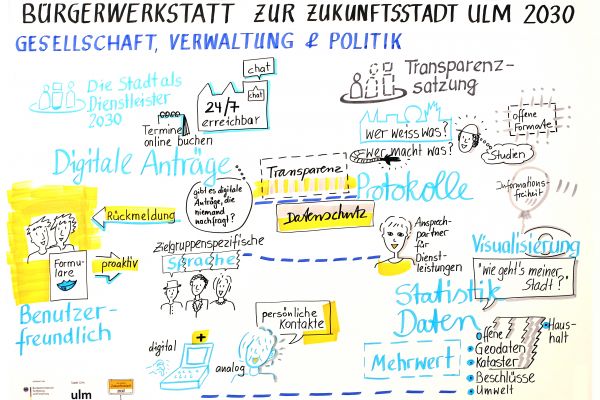 BÜRGERWERKSTATT ZUR ZUKUNFTSSTADT ULM 2030
GESELLSCHAFT, VERWALTUNG & POLITIK
Die Stadt als
Dienstleister
2030
chat
chat
24/7
erreichbar
Termine
online buchen
Digitale Anträge
gibt es digitale
Anträge, die
niemand
nachfragt?
Rückmeldung
Formu-
lare
proaktiv
Benutzer-
freundlich
Zielgruppenspezifische
Sprache
digital
analog
persönliche
Kontakte
Transparenz
Datenschutz
Transparenz-
satzung
wer weiss was?
wer macht was?
offene
Formate
Studien
Protokolle
Informations-
freiheit
Ansprech-
partner
für
Dienst-
leistungen
Visualisierung
"wie geht's meiner
Stadt?"
Statistik
Daten
Mehrwert
Offene
Geodaten
Kataster
Beschlüsse
Umwelt
Haus-
halt
ulm